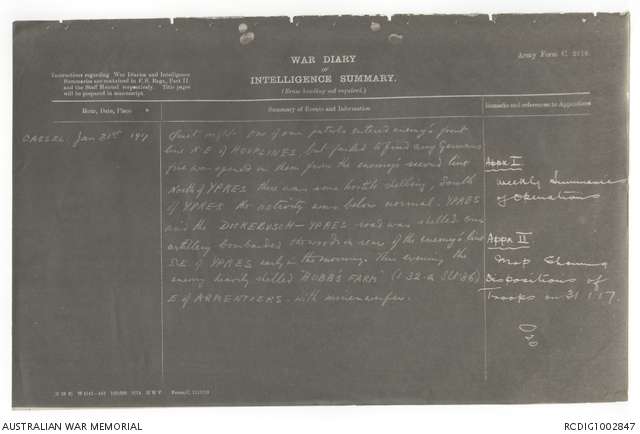 Army Form C. 2118.
WAR DIARY
or
INTELLIGENCE SUMMARY.
(Erase heading not required.)
Instructions regarding War Diaries and Intelligence
Summaries are contained in F. S. Regs., Part II
and the Staff Manual respectively. Title pages
will be prepared in manuscript.
Hour, Date, Place
Summary of Events and Information
Remarks and references to Appendices
CASSEL. Jan 31st 1917
Quiet night. One of our patrols entered enemy's front
line N.E of HOUPLINES, but failed to find any Germans
fire was opened on them from the enemy's second line
North of YPRES there was some hostile shelling, South
of YPRES the activity was below normal. YPRES
and the DICKEBUSCH—YPRES road was shelled our
artillery bombarded the wood in rear of the enemy's line
S.E. of YPRES early in the morning. This evening the
enemy heavily shelled "HOBBS FARM" (I.32.a Sht 36)
E of ARMENTIERS. with minenwerfer.
Appx I
Weekly Summaries
of Operations
Appx II
Map Showing
Dispositions of
Troops on 31.1.17.
AUSTRALIAN WAR MEMORIAL
RCDIG1002847